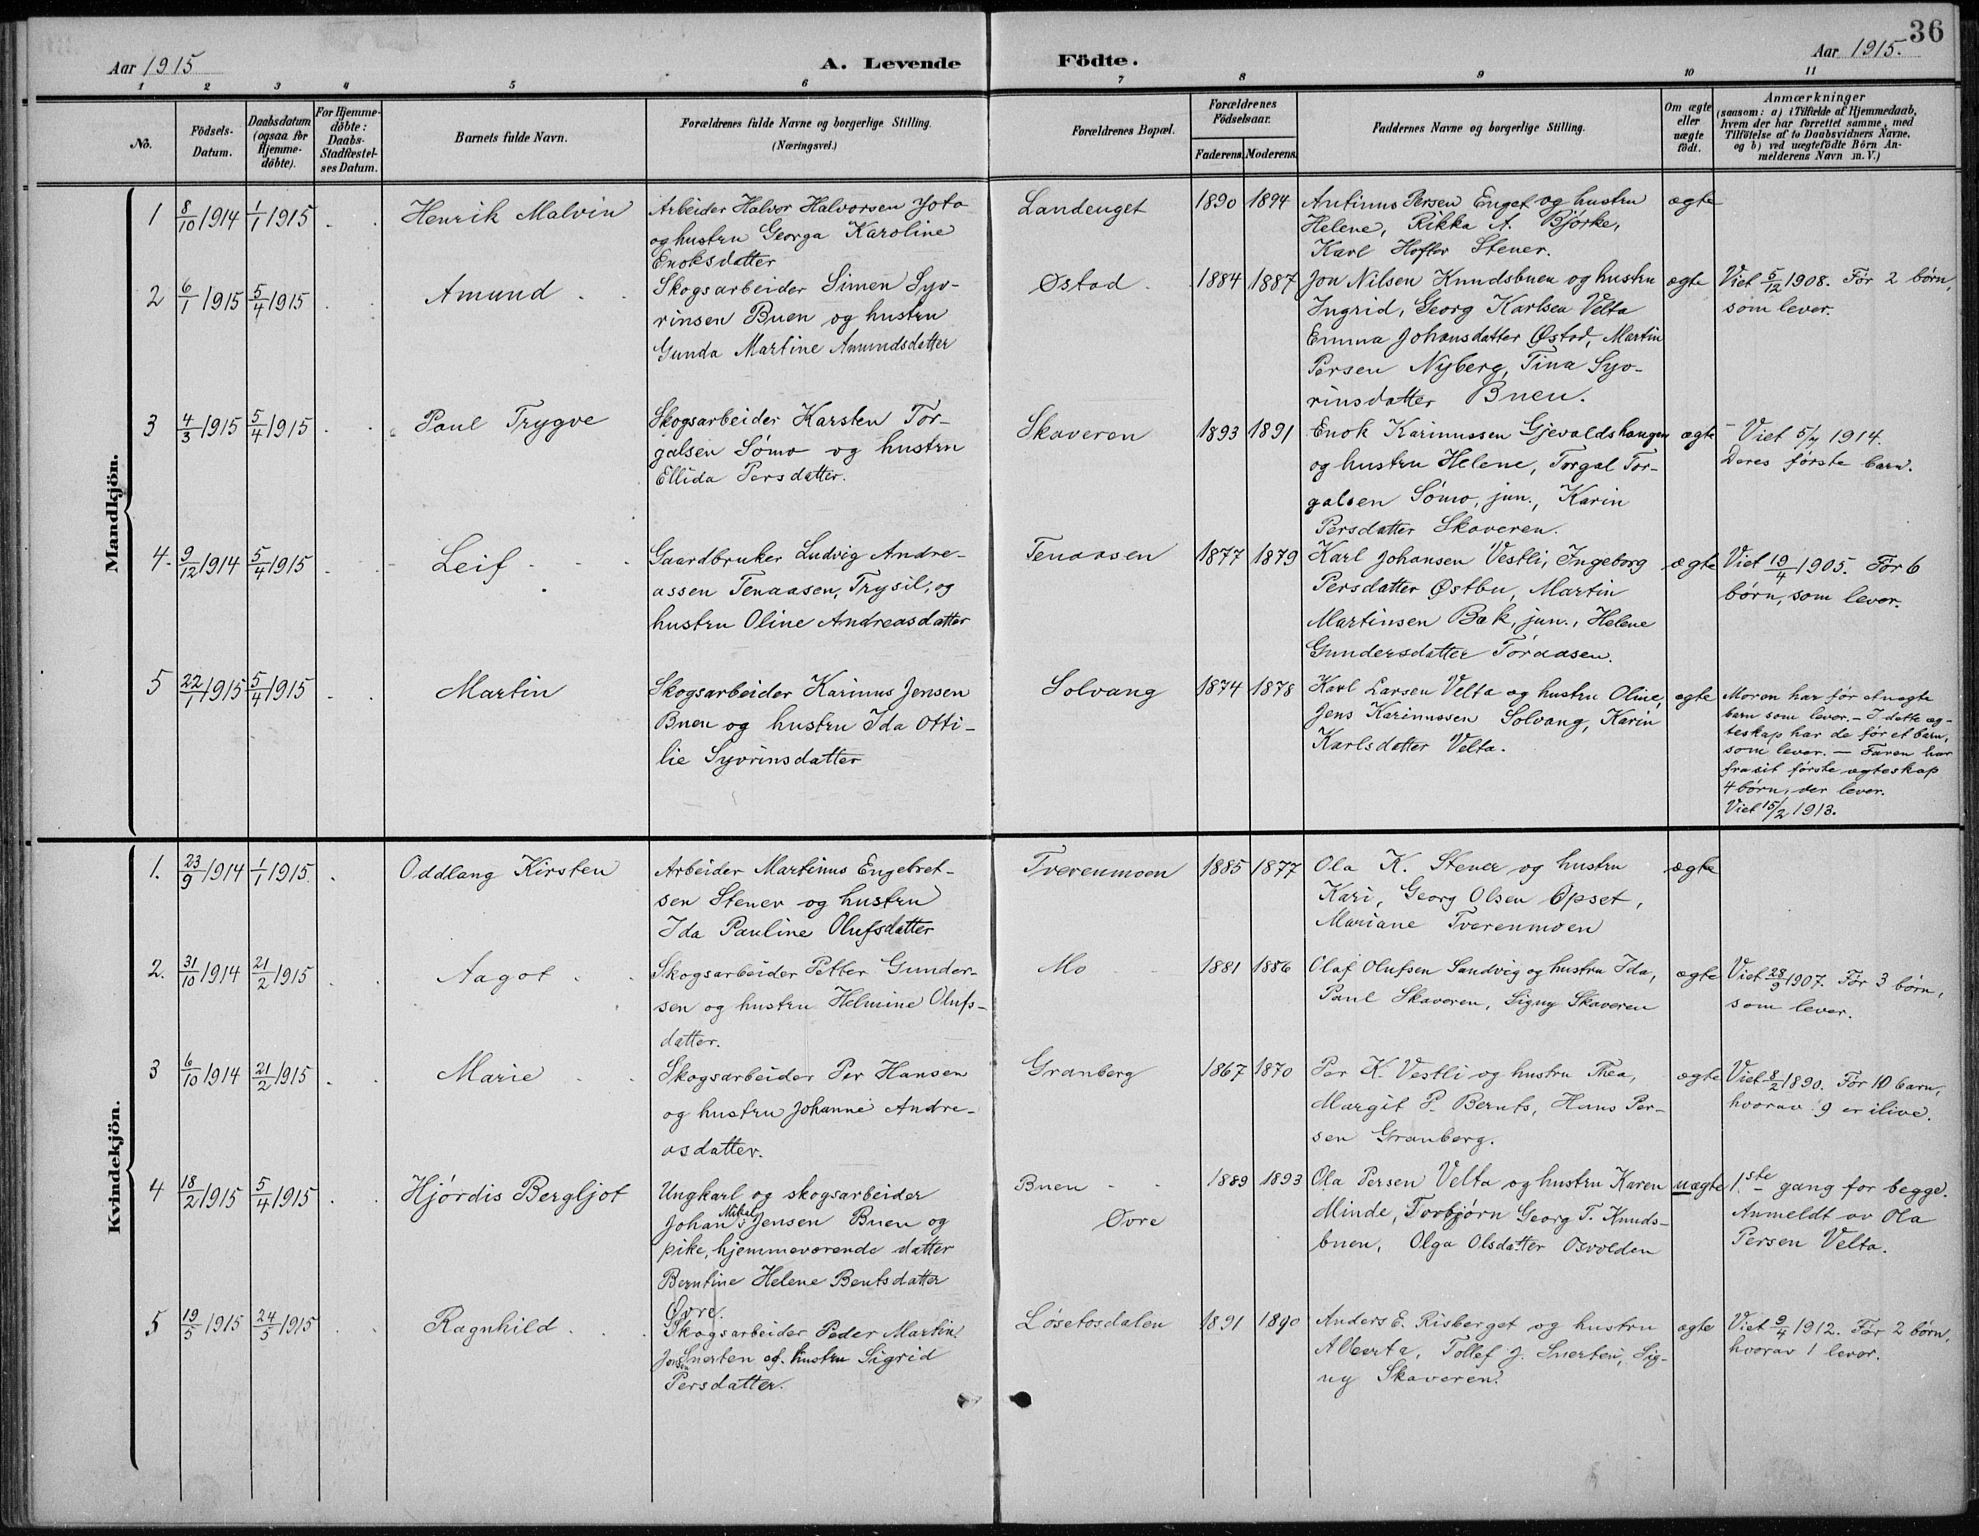 36
Aar 1915
A. Levende
Födte.
Aar 1915.
1 2 3 4 5 6 7 8 9 10 11
No.
Födsels-
Datum.
Daabsdatum
(ogsaa for
Hjemme-
döbte).
For Hjemme-
döbte:
Daabs-
Stadfæstel-
ses Datum.
Barnets fulde Navn.
Forældrenes fulde Navne og borgerlige Stilling.
(Næringsvei.)
Forældrenes Bopæl.
Forældrenes
Födselsaar.
Faderens.
Moderens.
Faddernes Navne og borgerlige Stilling.
Om ægte
eller
uægte
födt.
Anmærkninger
(saasom: a) i Tilfælde af Hjemmedaab,
hvem der har forrettet samme, med
Tilföielse af to Daabsvidners Navne,
og b) ved uægtefödte Börn An-
melderens Navn m. V.)
Mandkjön.
1
8/10 1914
1/1 1915
Henrik Malvin
Arbeider Halvor Halvorsen Joto
og hustru Georga Karoline
Enoksdatter
Landenget
1890
1894
Antinus Persen Enget og hustru
Helene, Rikka A. Bjørke,
Karl Hofter Stener.
ægte
2
6/1 1915
5/4 1915
Amund
Skogsarbeider Simen Syv-
rinsen Buen og hustru
Gunda Martine Amundsdatter
Østad
1884
1887
Jon Nilsen Knudsbuen og hustru
Ingrid, Georg Karlsen Velta
Emma Johansdatter Østad, Martin
Persen Nyberg, Tina Syv-
rinsdatter Buen.
ægte
Viet 5/12 1908. Før 2 børn,
som lever.
3
4/3 1915
5/4 1915
Paul Trygve
Skogsarbeider Karsten Tor-
galsen Sömo og hustru
Ellida Persdatter.
Skaveren
1893
1891
Enok Karinussen Gjevaldshaugen
og hustru Helene, Torgal Tor-
galsen Sömo, jun., Karin
Persdatter Skaveren.
ægte
Viet 5/7 1914.
Deres første barn.
4.
9/12 1914
5/4 1915
Leif
Gaardbruker Ludvig Andre-
assen Tenaasen, Trysil, og
hustru Oline Andreasdatter
Tenaasen
1877
1879
Karl Johansen Vestli, Ingeborg
Persdatter Østbu, Martin
Martinsen Bak, jun., Helene
Gundersdatter Töraasen.
ægte
Viet 19/4 1905. Før 6
børn, som lever.
5
22/1 1915
5/4 1915
Martin
Skogsarbeider Karinus Jensen
Buen og hustru Ida Otti-
lie Syvrinsdatter
Solvang
1874
1878
Karl Larsen Velta og hustru Oline,
Jens Karinussen Solvang, Karin
Karlsdatter Velta.
ægte
Moren har før et uægte
barn som lever. – I dette æg-
teskap har de før et barn,
som lever. – Faren har
fra sit første ægteskap
4 børn, der lever.
Viet 15/2 1913.
Kvindekjön.
1.
23/9 1914
1/1 1915
Oddlaug Kirsten
Arbeider Martinus Engebret-
sen Stener og hustru
Ida Pauline Olufsdatter
Tverenmoen
1885
1877
Ola K. Stener og hustru
Kari, Georg Olsen Opset,
Mariane Tverenmoen
ægte
2.
31/10 1914
21/2 1915
Aagot
Skogsarbeider Petter Gunder-
sen og hustru Helmine Olufs-
datter.
Mo
1881
1886
Olaf Olufsen Sandvig og hustru Ida,
Paul Skaveren, Signy Skaveren
ægte
Viet 28/9 1907. Før 3 børn,
som lever.
3
6/10 1914
21/2 1915
Marie
Skogsarbeider Per Hansen
og hustru Johanne Andre-
asdatter.
Granberg
1867
1870
Per K. Vestli og hustru Thea,
Margit P. Bernts, Hans Per-
sen Granberg.
ægte
Viet 8/2 1890. Før 10 barn,
hvorav 9 er ilive.
4
18/2 1915
5/4 1915
Hjördis Bergljot
Ungkarl og skogsarbeider
Johan Mikal Jensen Buen og
pike, hjemmeværende datter
Berntine Helene Bentsdatter
Øvre.
Buen
Øvre
1889
1893
Ola Persen Velta og hustru Karen
Minde, Torbjørn Georg T. Knuds-
buen, Olga Olsdatter Osvolden
uægte
1.ste gang for begge.
Anmeldt av Ola
Persen Velta.
5
19/5 1915
24/5 1915
Ragnhild
Skogsarbeider Peder Martin
Jensen Snerten og hustru Sigrid
Persdatter.
Løsetosdalen
1891
1890
Anders E. Risberget og hustru
Alberta, Tollef J. Snerten, Sig-
ny Skaveren.
ægte
Viet 9/4 1912. Før 2 børn,
hvorav 1 lever.